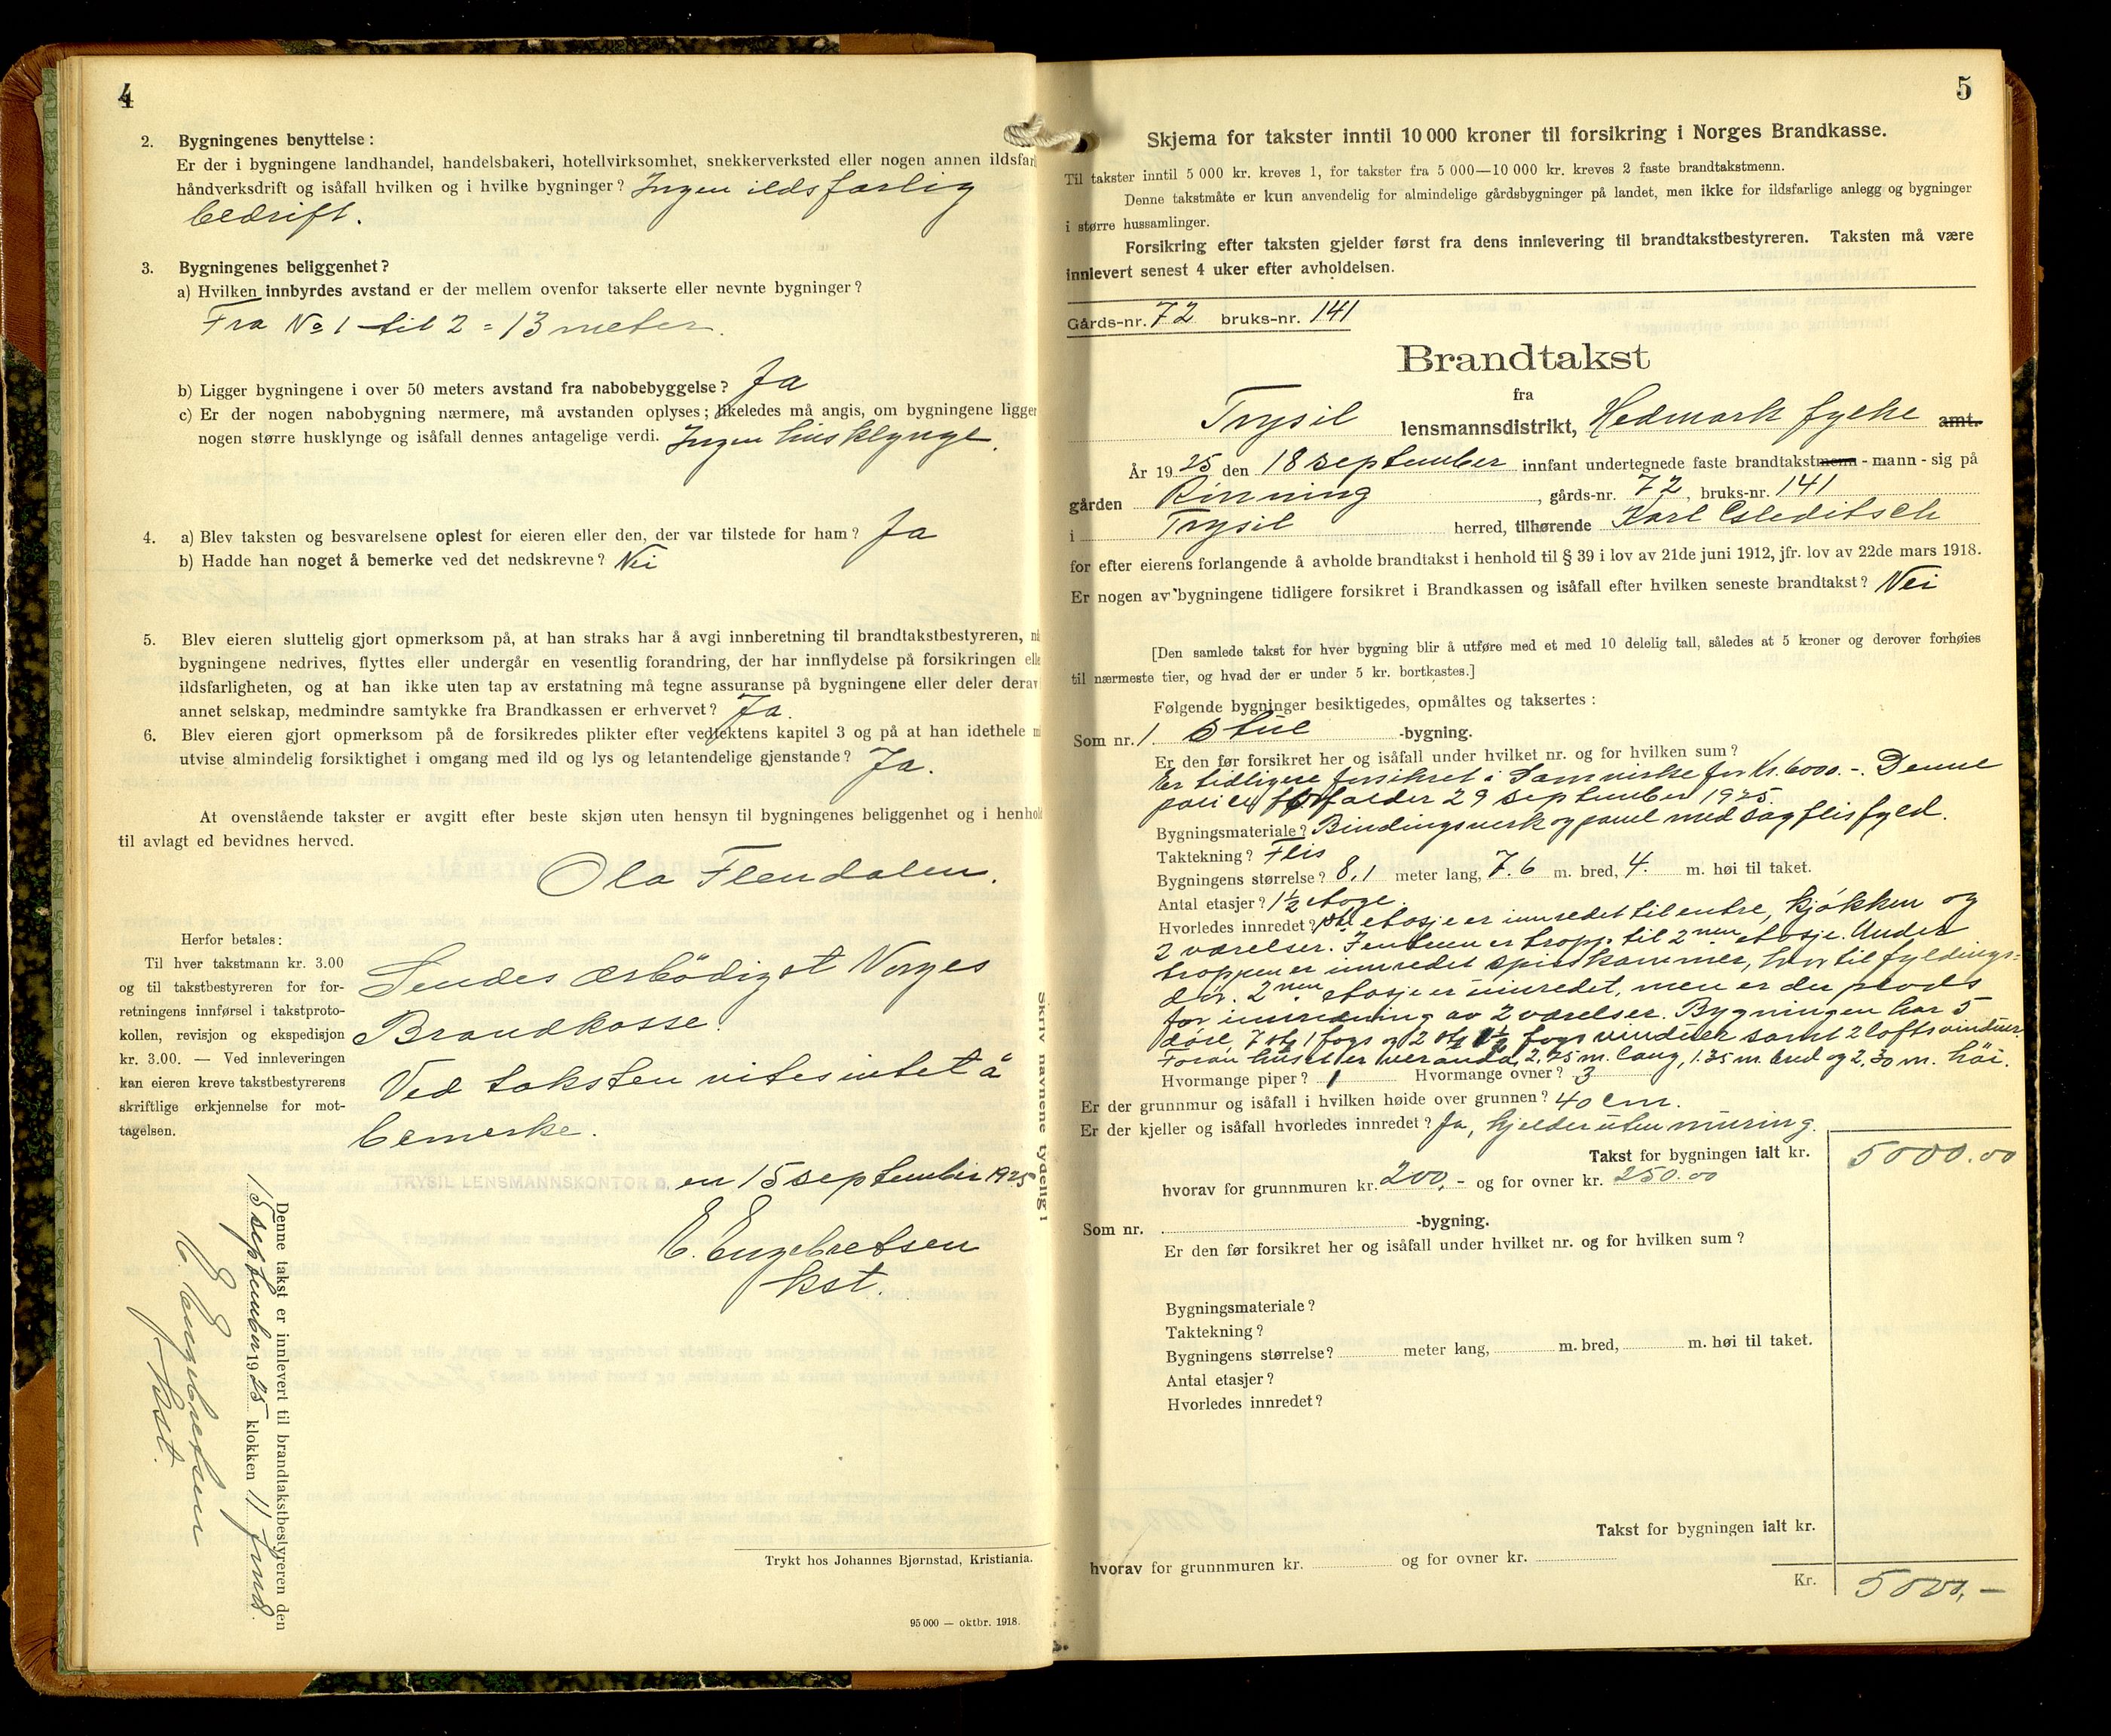 4
2. Bygningenes benyttelse:
Er der i bygningene landhandel, handelsbakeri, hotellvirksomhet, snekkerverksted eller nogen annen ildsfar
håndverksdrift og isåfall hvilken og i hvilke bygninger? Ingen ildsfarlig
bedrift.
3. Bygningenes beliggenhet?
a) Hvilken innbyrdes avstand er der mellem ovenfor takserte eller nevnte bygninger?
Fra No 1 til 2 = 13 meter.
b) Ligger bygningene i over 50 meters avstand fra nabobebyggelse? Ja
c) Er der nogen nabobygning nærmere, må avstanden oplyses; likeledes må angis, om bygningene ligger
nogen større husklynge og isåfall dennes antagelige verdi. Ingen husklynge.
4. a) Blev taksten og besvarelsene oplest for eieren eller den, der var tilstede for ham? Ja
b) Hadde han noget å bemerke ved det nedskrevne? Nei
5. Blev eieren sluttelig gjort opmerksom på, at han straks har å avgi innberetning til brandtakstbestyreren, nå
bygningene nedrives, flyttes eller undergår en vesentlig forandring, der har innflydelse på forsikringen elle
ildsfarligheten, og at han ikke uten tap av erstatning må tegne assuranse på bygningene eller deler derav
annet selskap, medmindre samtykke fra Brandkassen er erhvervet? Ja.
6. Blev eieren gjort opmerksom på de forsikredes plikter efter vedtektens kapitel 3 og på at han idethele m
utvise almindelig forsiktighet i omgang med ild og lys og letantendelige gjenstande? Ja.
At ovenstående takster er avgitt efter beste skjøn uten hensyn til bygningenes beliggenhet og i henhold
til avlagt ed bevidnes herved.
Ola Flendalen.
Herfor betales:
Til hver takstmann kr. 3.00
og til takstbestyreren for for-
retningens innførsel i takstproto-
kollen, revisjon og ekspedisjon
kr. 3.00. — Ved innleveringen
kan eieren kreve takstbestyrerens
skriftlige erkjennelse for mot-
tagelsen.
Sendes ærbödigst Norges
Brandkasse.
Ved taksten vites intet å
bemerke.
TRYSIL LENSMANNSKONTOR D. en 15 september 1925
E. Engebretsen
kst.
Denne takst er innlevert til brandtakstbestyreren den
15 september 1925 klokken 11 fmd.
E. Engebretsen
kst.
Trykt hos Johannes Bjørnstad, Kristiania.
95 000 — oktbr. 1918.
Skriv navnene tydelig!
5
Skjema for takster inntil 10 000 kroner til forsikring i Norges Brandkasse.
Til takster inntil 5 000 kr. kreves 1, for takster fra 5 000—10 000 kr. kreves 2 faste brandtakstmenn.
Denne takstmåte er kun anvendelig for almindelige gårdsbygninger på landet, men ikke for ildsfarlige anlegg og bygninger
i større hussamlinger.
Forsikring efter taksten gjelder først fra dens innlevering til brandtakstbestyreren. Taksten må være
innlevert senest 4 uker efter avholdelsen.
Gårds-nr. 72 bruks-nr. 141
Brandtakst
fra
Trysil lensmannsdistrikt, Hedmark fylke amt.
År 1925 den 18 september innfant undertegnede faste brandtakstmenn - mann - sig på
gården Rönning, gårds-nr. 72, bruks-nr. 141
i Trysil herred, tilhørende Karl Gleditsch
for efter eierens forlangende å avholde brandtakst i henhold til § 39 i lov av 21de juni 1912, jfr. lov av 22de mars 1918.
Er nogen av bygningene tidligere forsikret i Brandkassen og isåfall efter hvilken seneste brandtakst? Nei
[Den samlede takst for hver bygning blir å utføre med et med 10 delelig tall, således at 5 kroner og derover forhøies
til nærmeste tier, og hvad der er under 5 kr. bortkastes.]
Følgende bygninger besiktigedes, opmåltes og taksertes:
Som nr. 1 Stue -bygning.
Er den før forsikret her og isåfall under hvilket nr. og for hvilken sum?
Er tidligere forsikret i Samvirke for Kr. 6000.-. Denne
police forfalder 29 september 1925.
Bygningsmateriale? Bindingsverk og panel med sagflisfyld.
Taktekning? Flis
Bygningens størrelse? 8,1 meter lang, 7.6 m. bred, 4. m. høi til taket.
Antal etasjer? 1½ etage.
Hvorledes innredet? 1ste etasje er innredet til entre, kjökken og
2 værelser. I entreen er tropp til 2nen etasje. Under
troppen er innredet spiskammer, hvortil fyldings-
dör. 2nen etasje er uinredet, men er der plads
for innredning av 2 værelser. Bygningen har 5
döre, 7 stk 1 fags og 2 stk 1½ fags vinduer samt 2 loftsvinduer.
Foran huset er veranda, 2,75 m. lang, 1.35 m. bred og 2,30 m. höi.
Hvormange piper? 1 Hvormange ovner? 3
Er der grunnmur og isåfall i hvilken høide over grunnen? 40 cm.
Er der kjeller og isåfall hvorledes innredet? Ja, kjelder uten muring.
Takst for bygningen ialt kr. 5000.00
hvorav for grunnmuren kr. 200,- og for ovner kr. 250.00
Som nr. -bygning.
Er den før forsikret her og isåfall under hvilket nr. og for hvilken sum?
Bygningsmateriale?
Taktekning?
Bygningens størrelse? meter lang, m. bred, m. høi til taket.
Antal etasjer?
Hvorledes innredet?
Takst for bygningen ialt kr.
hvorav for grunnmuren kr. og for ovner kr.
Kr. 5000,-